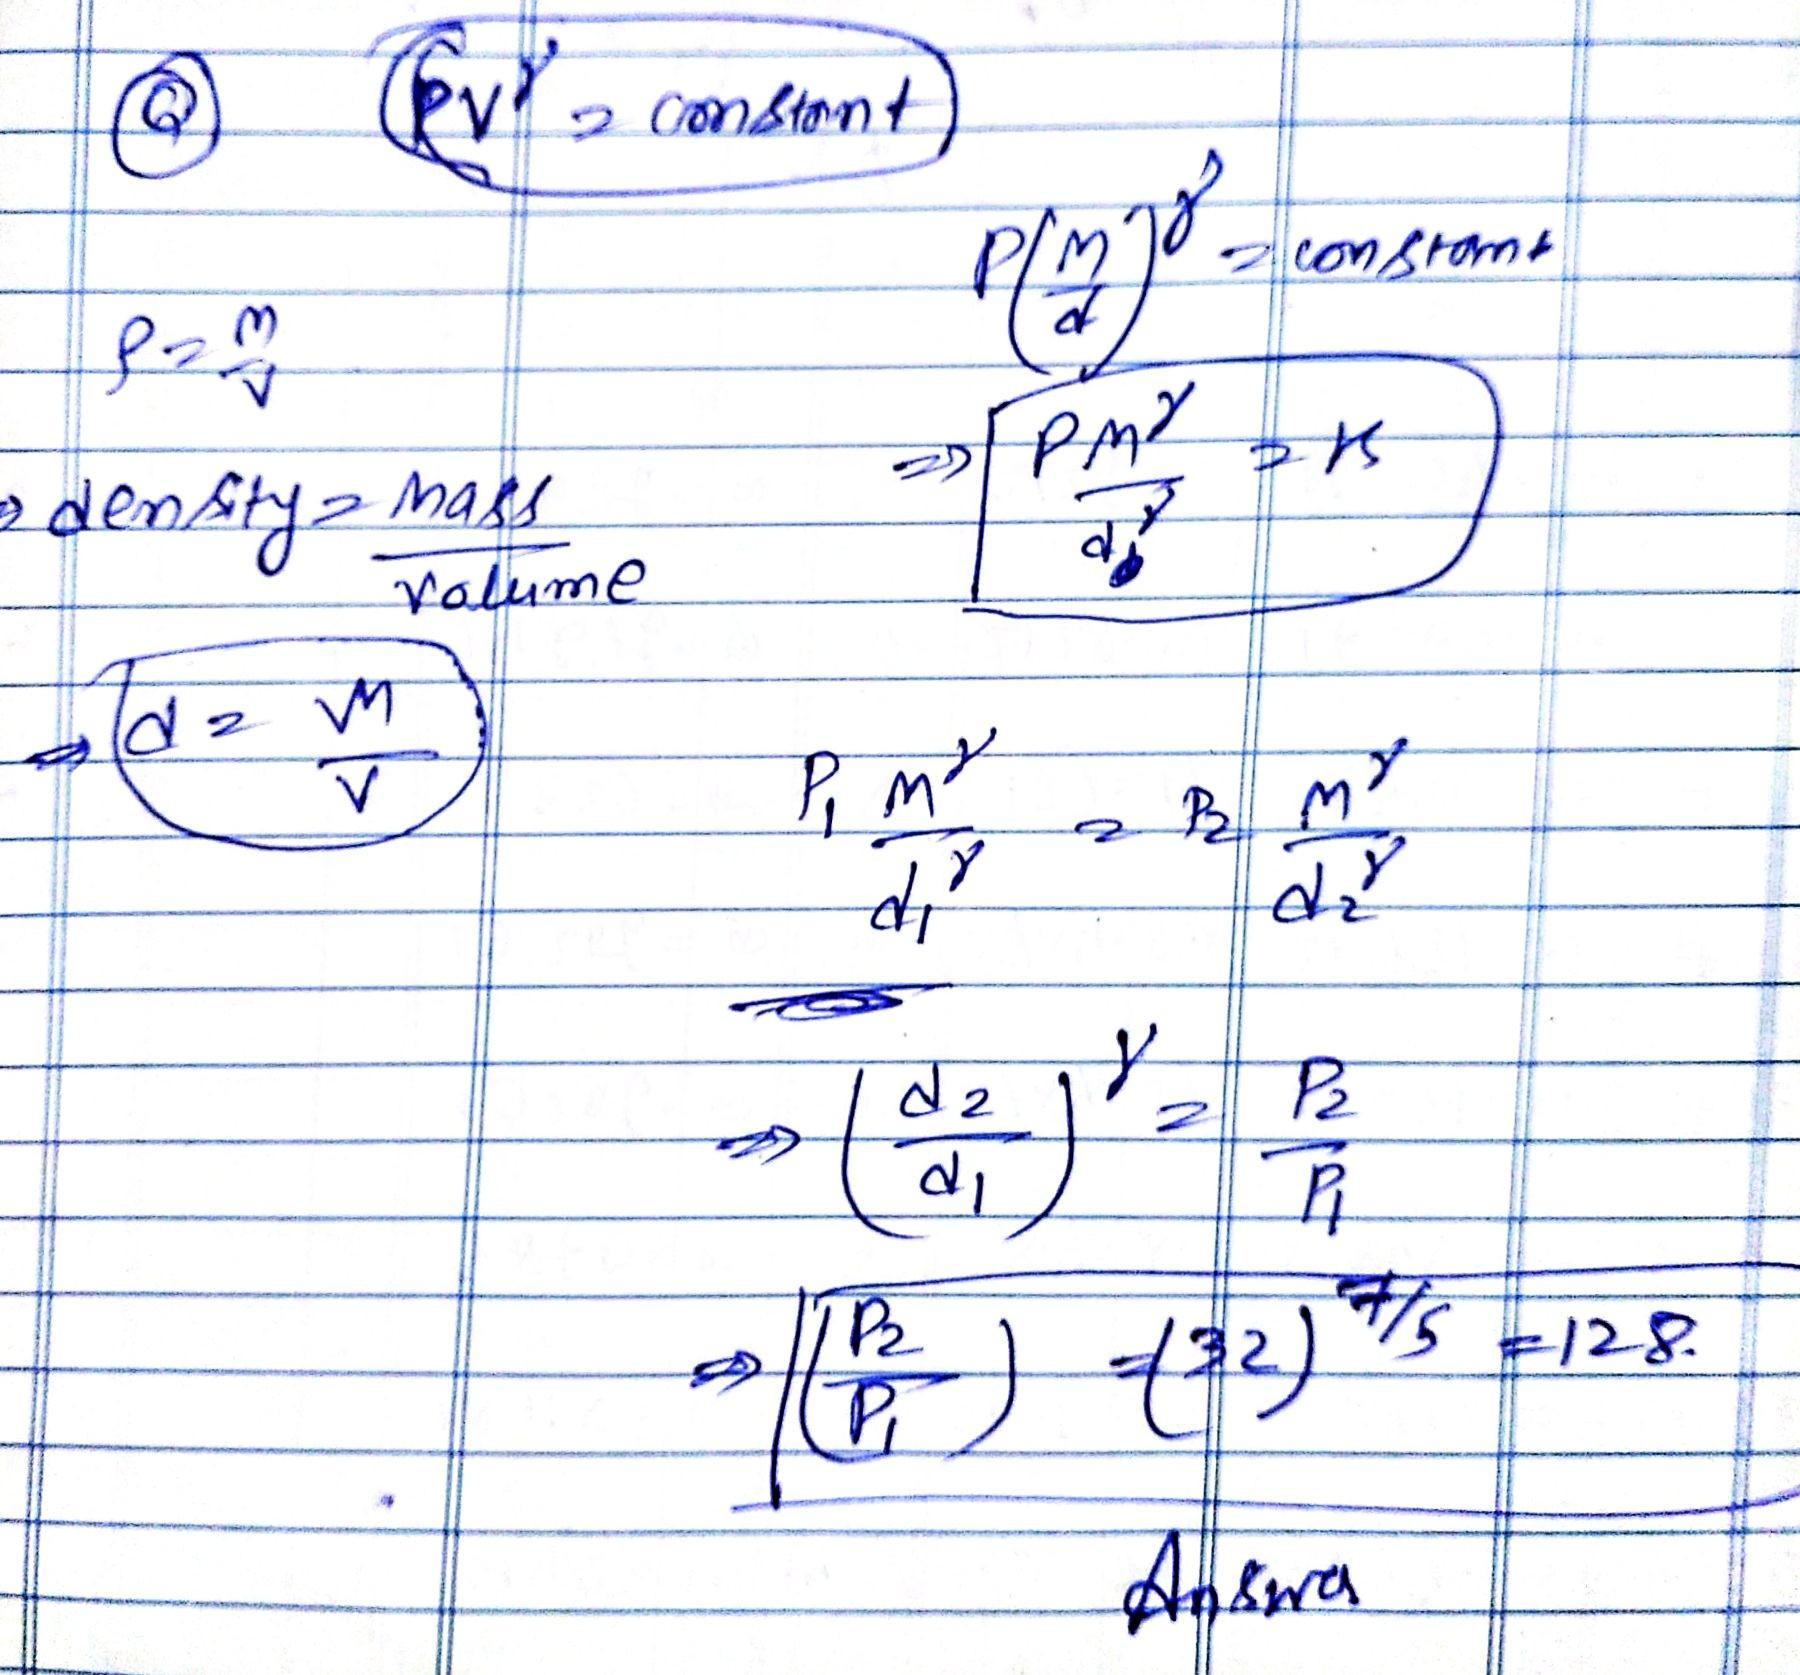 Q PV^γ = constant
P(M/d)^γ = constant
ρ = m/v
⇒ PM^γ/d^γ = K
⇒ density = mass/volume
⇒ d = M/V
P₁ M^γ/d₁^γ = P₂ M^γ/d₂^γ
⇒ (d₂/d₁)^γ = P₂/P₁
⇒ (P₂/P₁) = (32)^7/5 = 128.